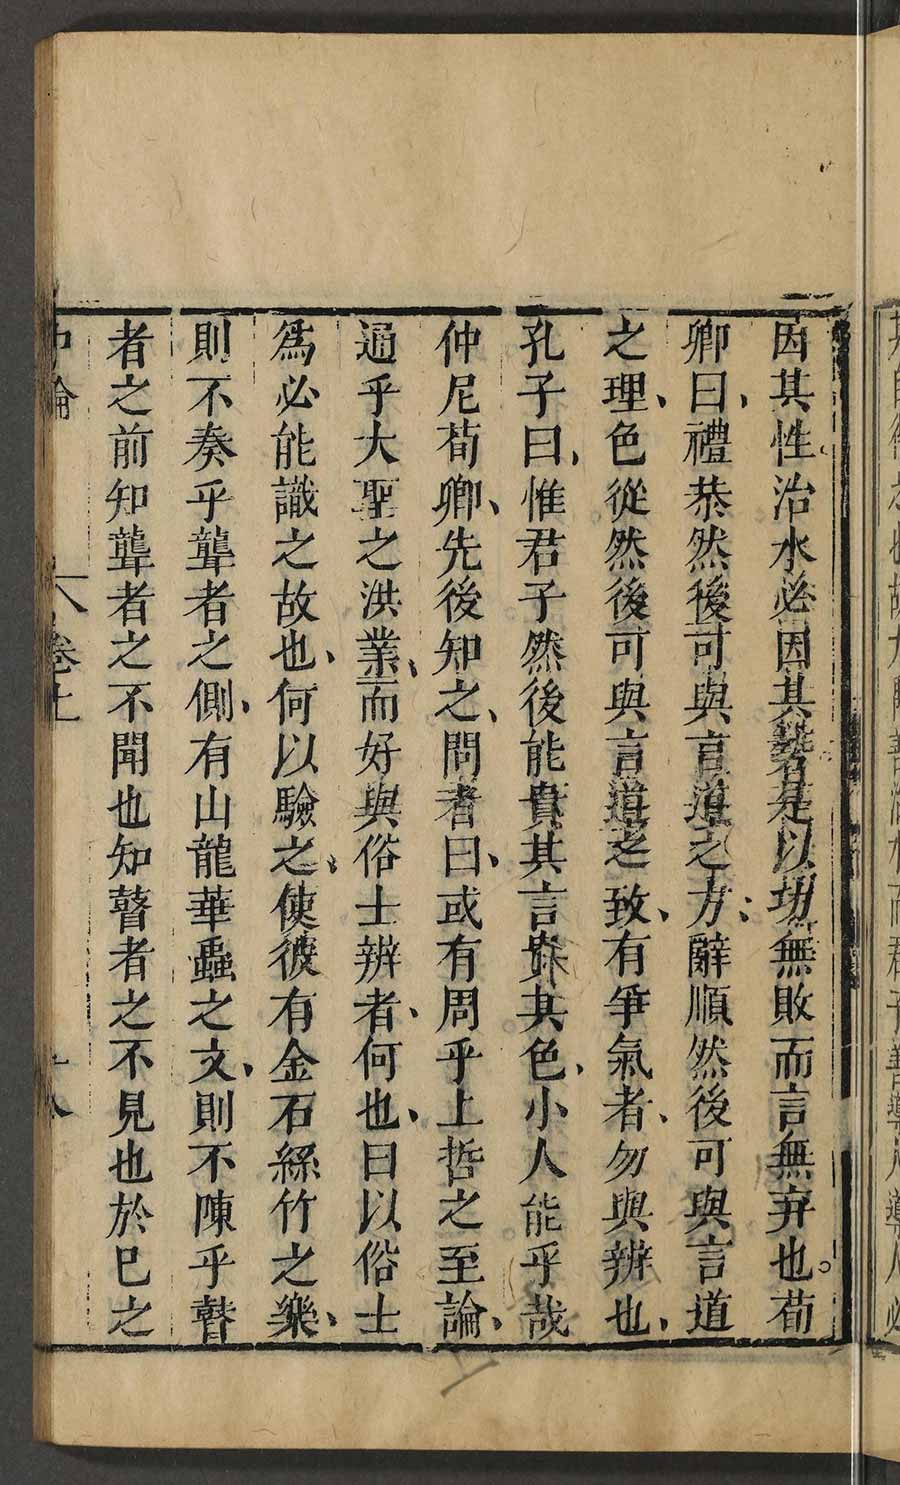 因其性治水必因其勢是以功無敗而言無弃也荀
卿曰禮恭然後可與言道之方辭順然後可與言道
之理色從然後可與言道之致有爭氣者勿與辨也
孔子曰惟君子然後能貴其言貴其色小人能乎哉
仲尼荀卿先後知之問者曰或有周乎上哲之至論
通乎大聖之洪業而好與俗士辨者何也曰以俗士
爲必能識之故也何以驗之使彼有金石絲竹之樂
則不奏乎聾者之側有山龍華蟲之文則不陳乎瞽
者之前知聾者之不聞也知瞽者之不見也於已之
中論
卷上